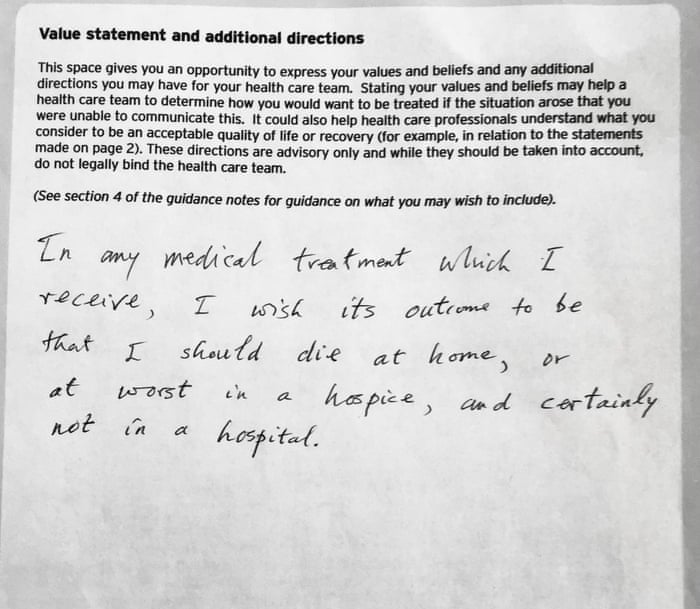 Value statement and additional directions
This space gives you an opportunity to express your values and beliefs and any additional
directions you may have for your health care team. Stating your values and beliefs may help a
health care team to determine how you would want to be treated if the situation arose that you
were unable to communicate this. It could also help health care professionals understand what you
consider to be an acceptable quality of life or recovery (for example, in relation to the statements
made on page 2). These directions are advisory only and while they should be taken into account,
do not legally bind the health care team.
(See section 4 of the guidance notes for guidance on what you may wish to include).
In any medical treatment which I
receive, I wish its outcome to be
that I should die at home, or
at worst in a hospice, and certainly
not in a hospital.